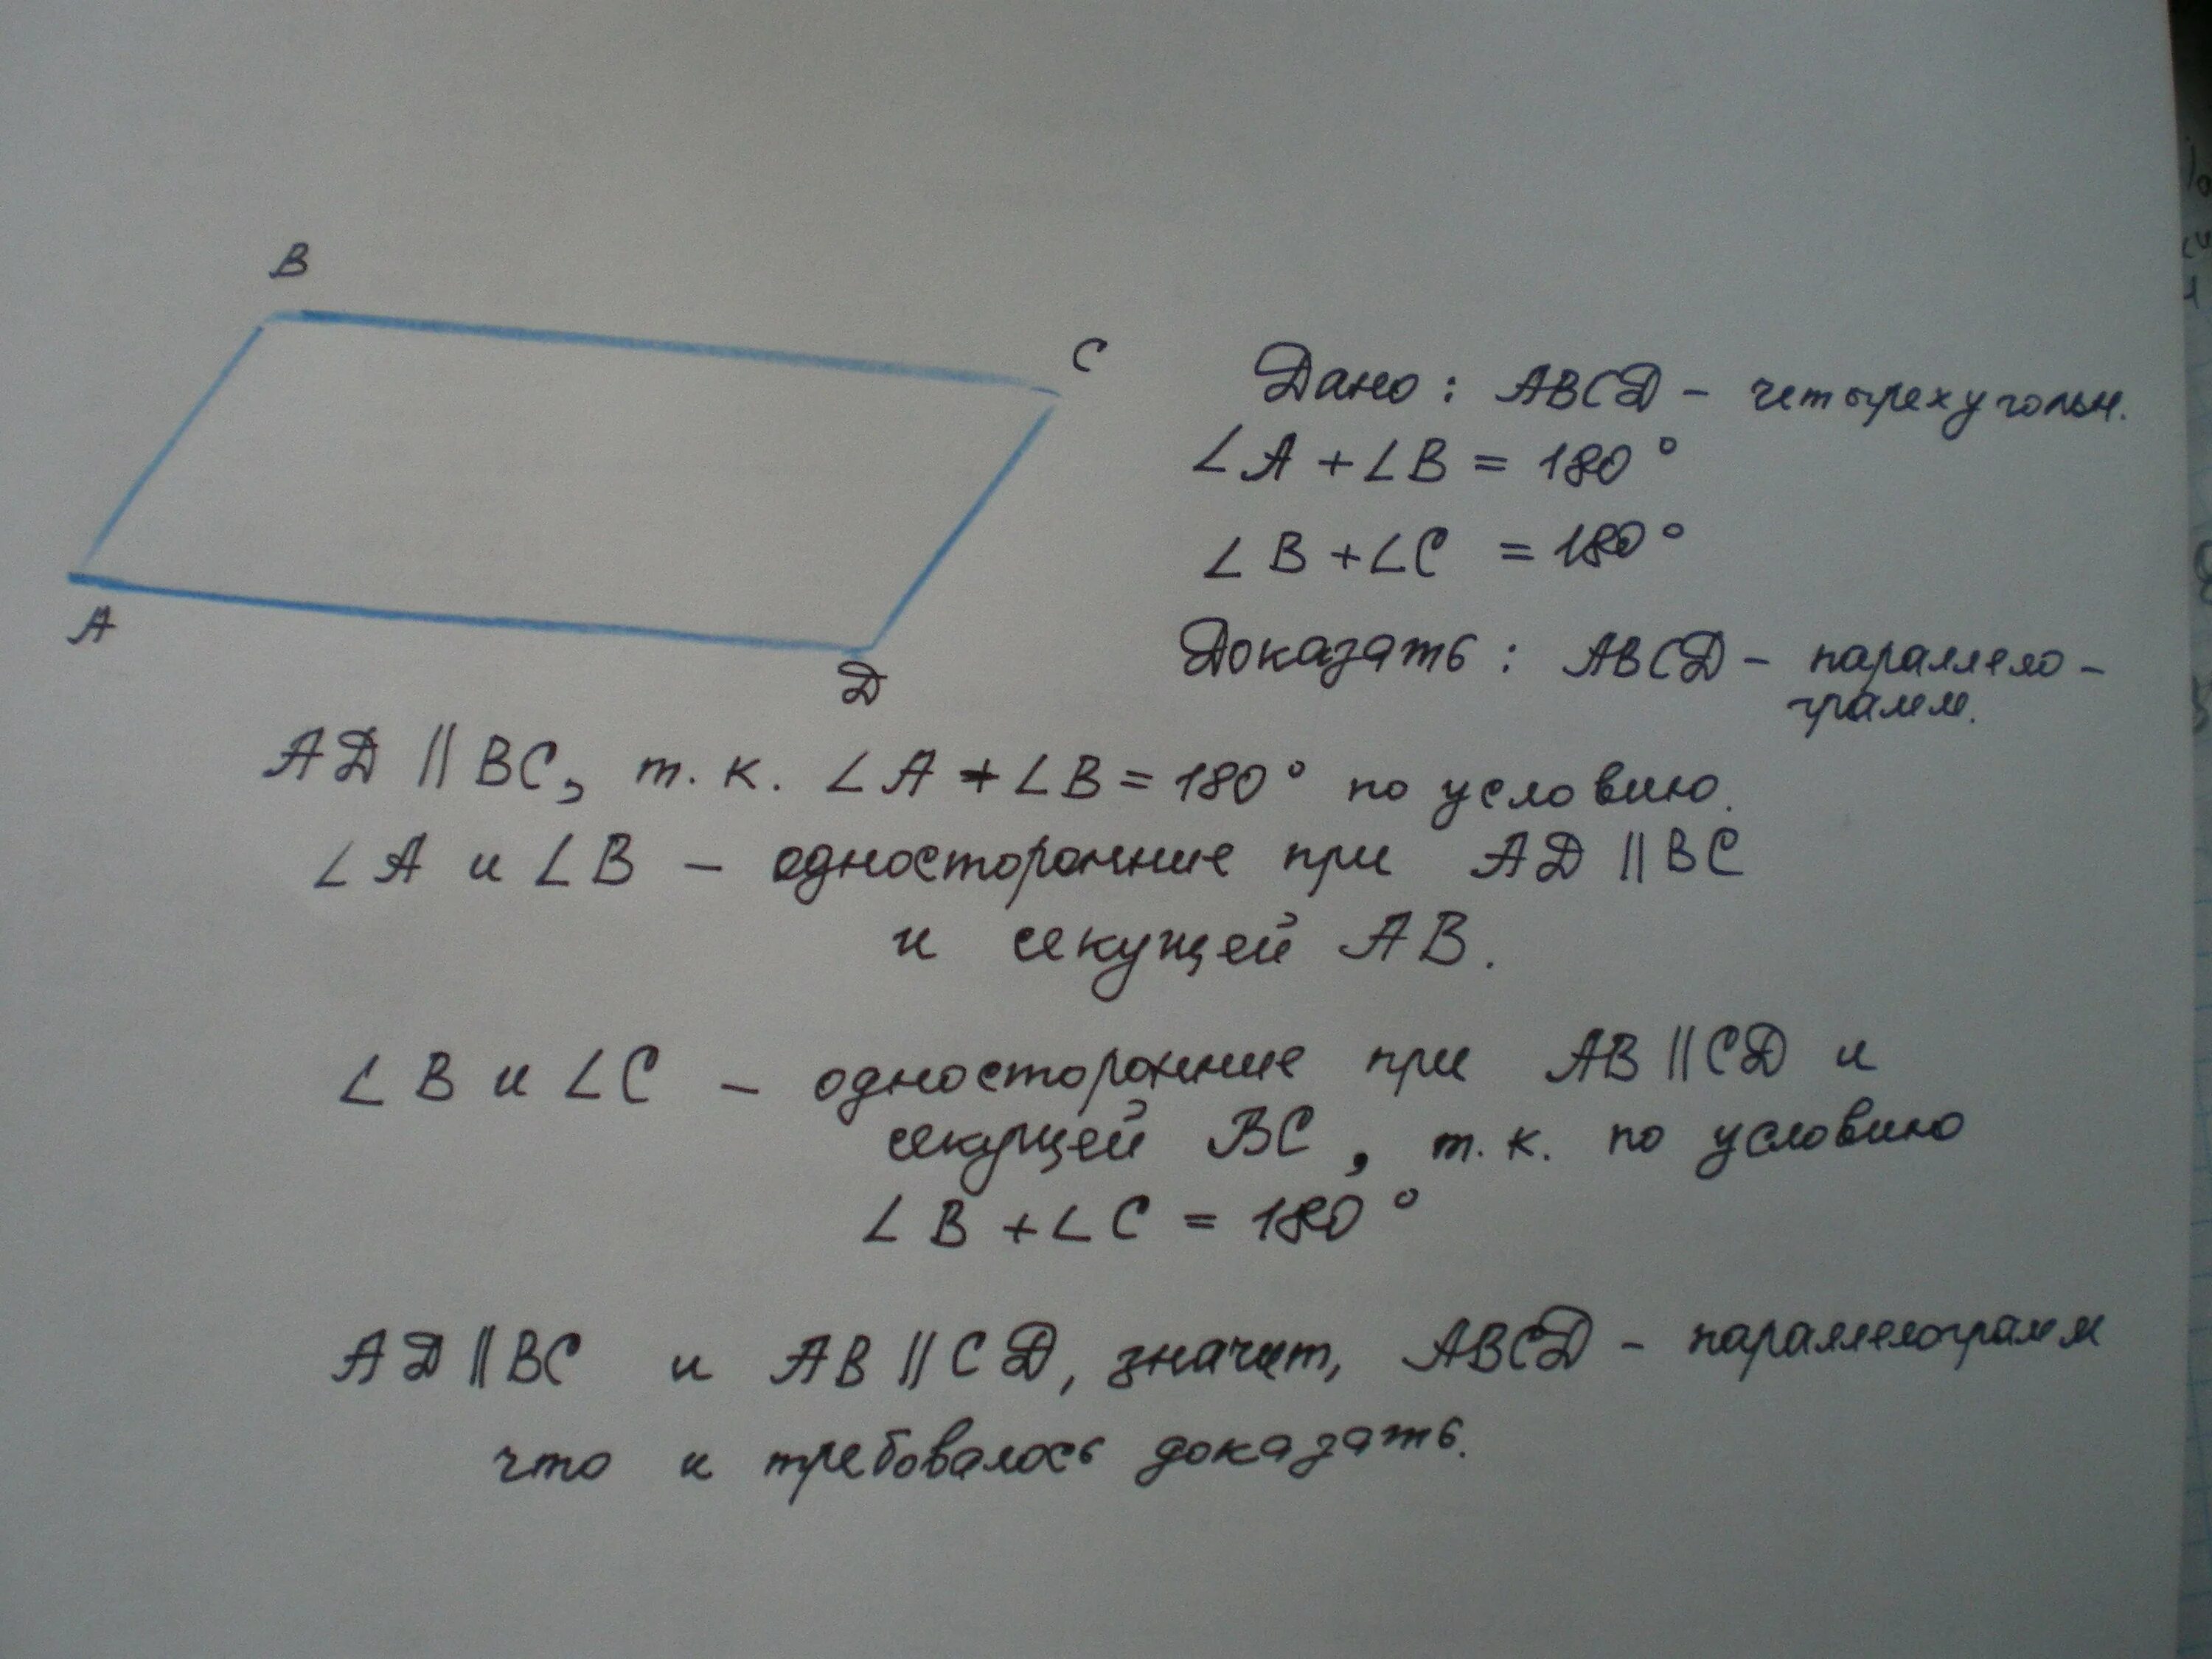 B
C
A
D
Дано: ABCD – четырехугольн.
∠A + ∠B = 180°
∠B + ∠C = 180°
Доказать: ABCD – параллело-
грамм.
AD || BC, т.к. ∠A + ∠B = 180° по условию.
∠A и ∠B – односторонние при AD || BC
и секущей AB.
∠B и ∠C – односторонние при AB || CD и
секущей BC, т.к. по условию
∠B + ∠C = 180°
AD || BC и AB || CD, значит, ABCD – параллелограмм
что и требовалось доказать.